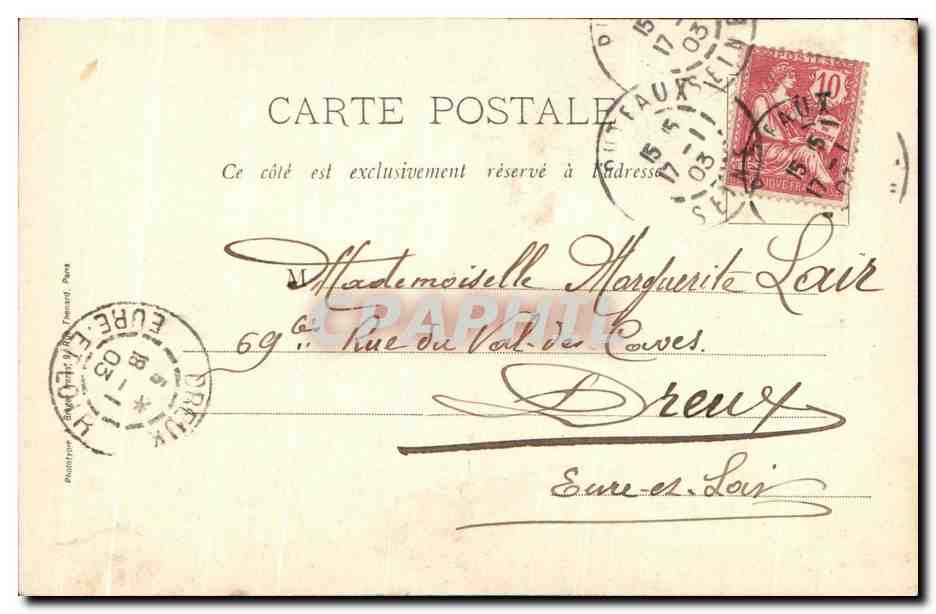 CARTE POSTALE
Ce côté est exclusivement réservé à l'adresse
POSTES
10
PUTEAUX
15 15
17 -1
03
SEINE
PUTEAUX
15 15
17 -1
03
Mademoiselle Marguerite Lair
69 bis Rue du Val-des Caves.
Dreux
Eure-et-Loir
DREUX
18 -1
03
EURE-ET-LOIR
Phototypie Rue Thenard, Paris
CPAPHIL